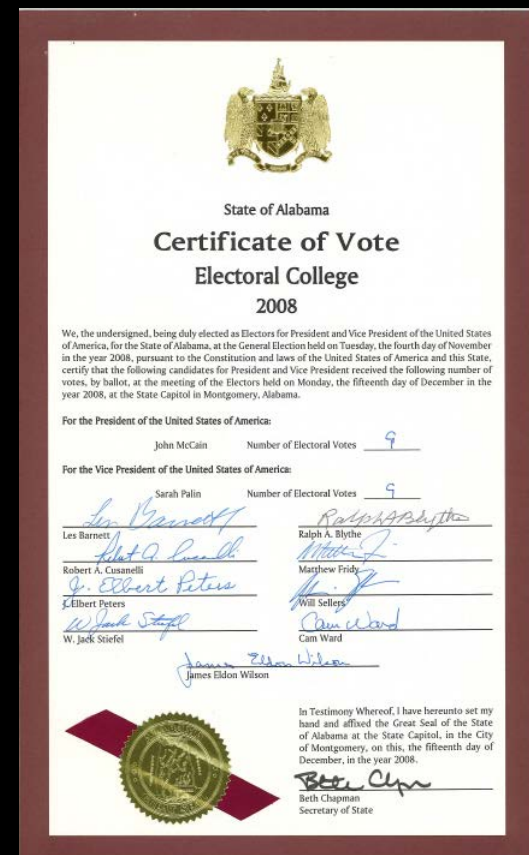 State of Alabama
Certificate of Vote
Electoral College
2008
We, the undersigned, being duly elected as Electors for President and Vice President of the United States
of America, for the State of Alabama, at the General Election held on Tuesday, the fourth day of November
in the year 2008, pursuant to the Constitution and laws of the United States of America and this State,
certify that the following candidates for President and Vice President received the following number of
votes, by ballot, at the meeting of the Electors held on Monday, the fifteenth day of December in the
year 2008, at the State Capitol in Montgomery, Alabama.
For the President of the United States of America:
John McCain Number of Electoral Votes 9
For the Vice President of the United States of America:
Sarah Palin Number of Electoral Votes 9
Les Barnett Ralph A Blythe
Les Barnett Ralph A. Blythe
Robert A. Cusanelli
Robert A. Cusanelli Matthew Fridy
J. Elbert Peters
J. Elbert Peters Will Sellers
W Jack Stiefel Cam Ward
W. Jack Stiefel Cam Ward
James Eldon Wilson
James Eldon Wilson
In Testimony Whereof, I have hereunto set my
hand and affixed the Great Seal of the State
of Alabama at the State Capitol, in the City
of Montgomery, on this, the fifteenth day of
December, in the year 2008.
Beth Chapman
Secretary of State